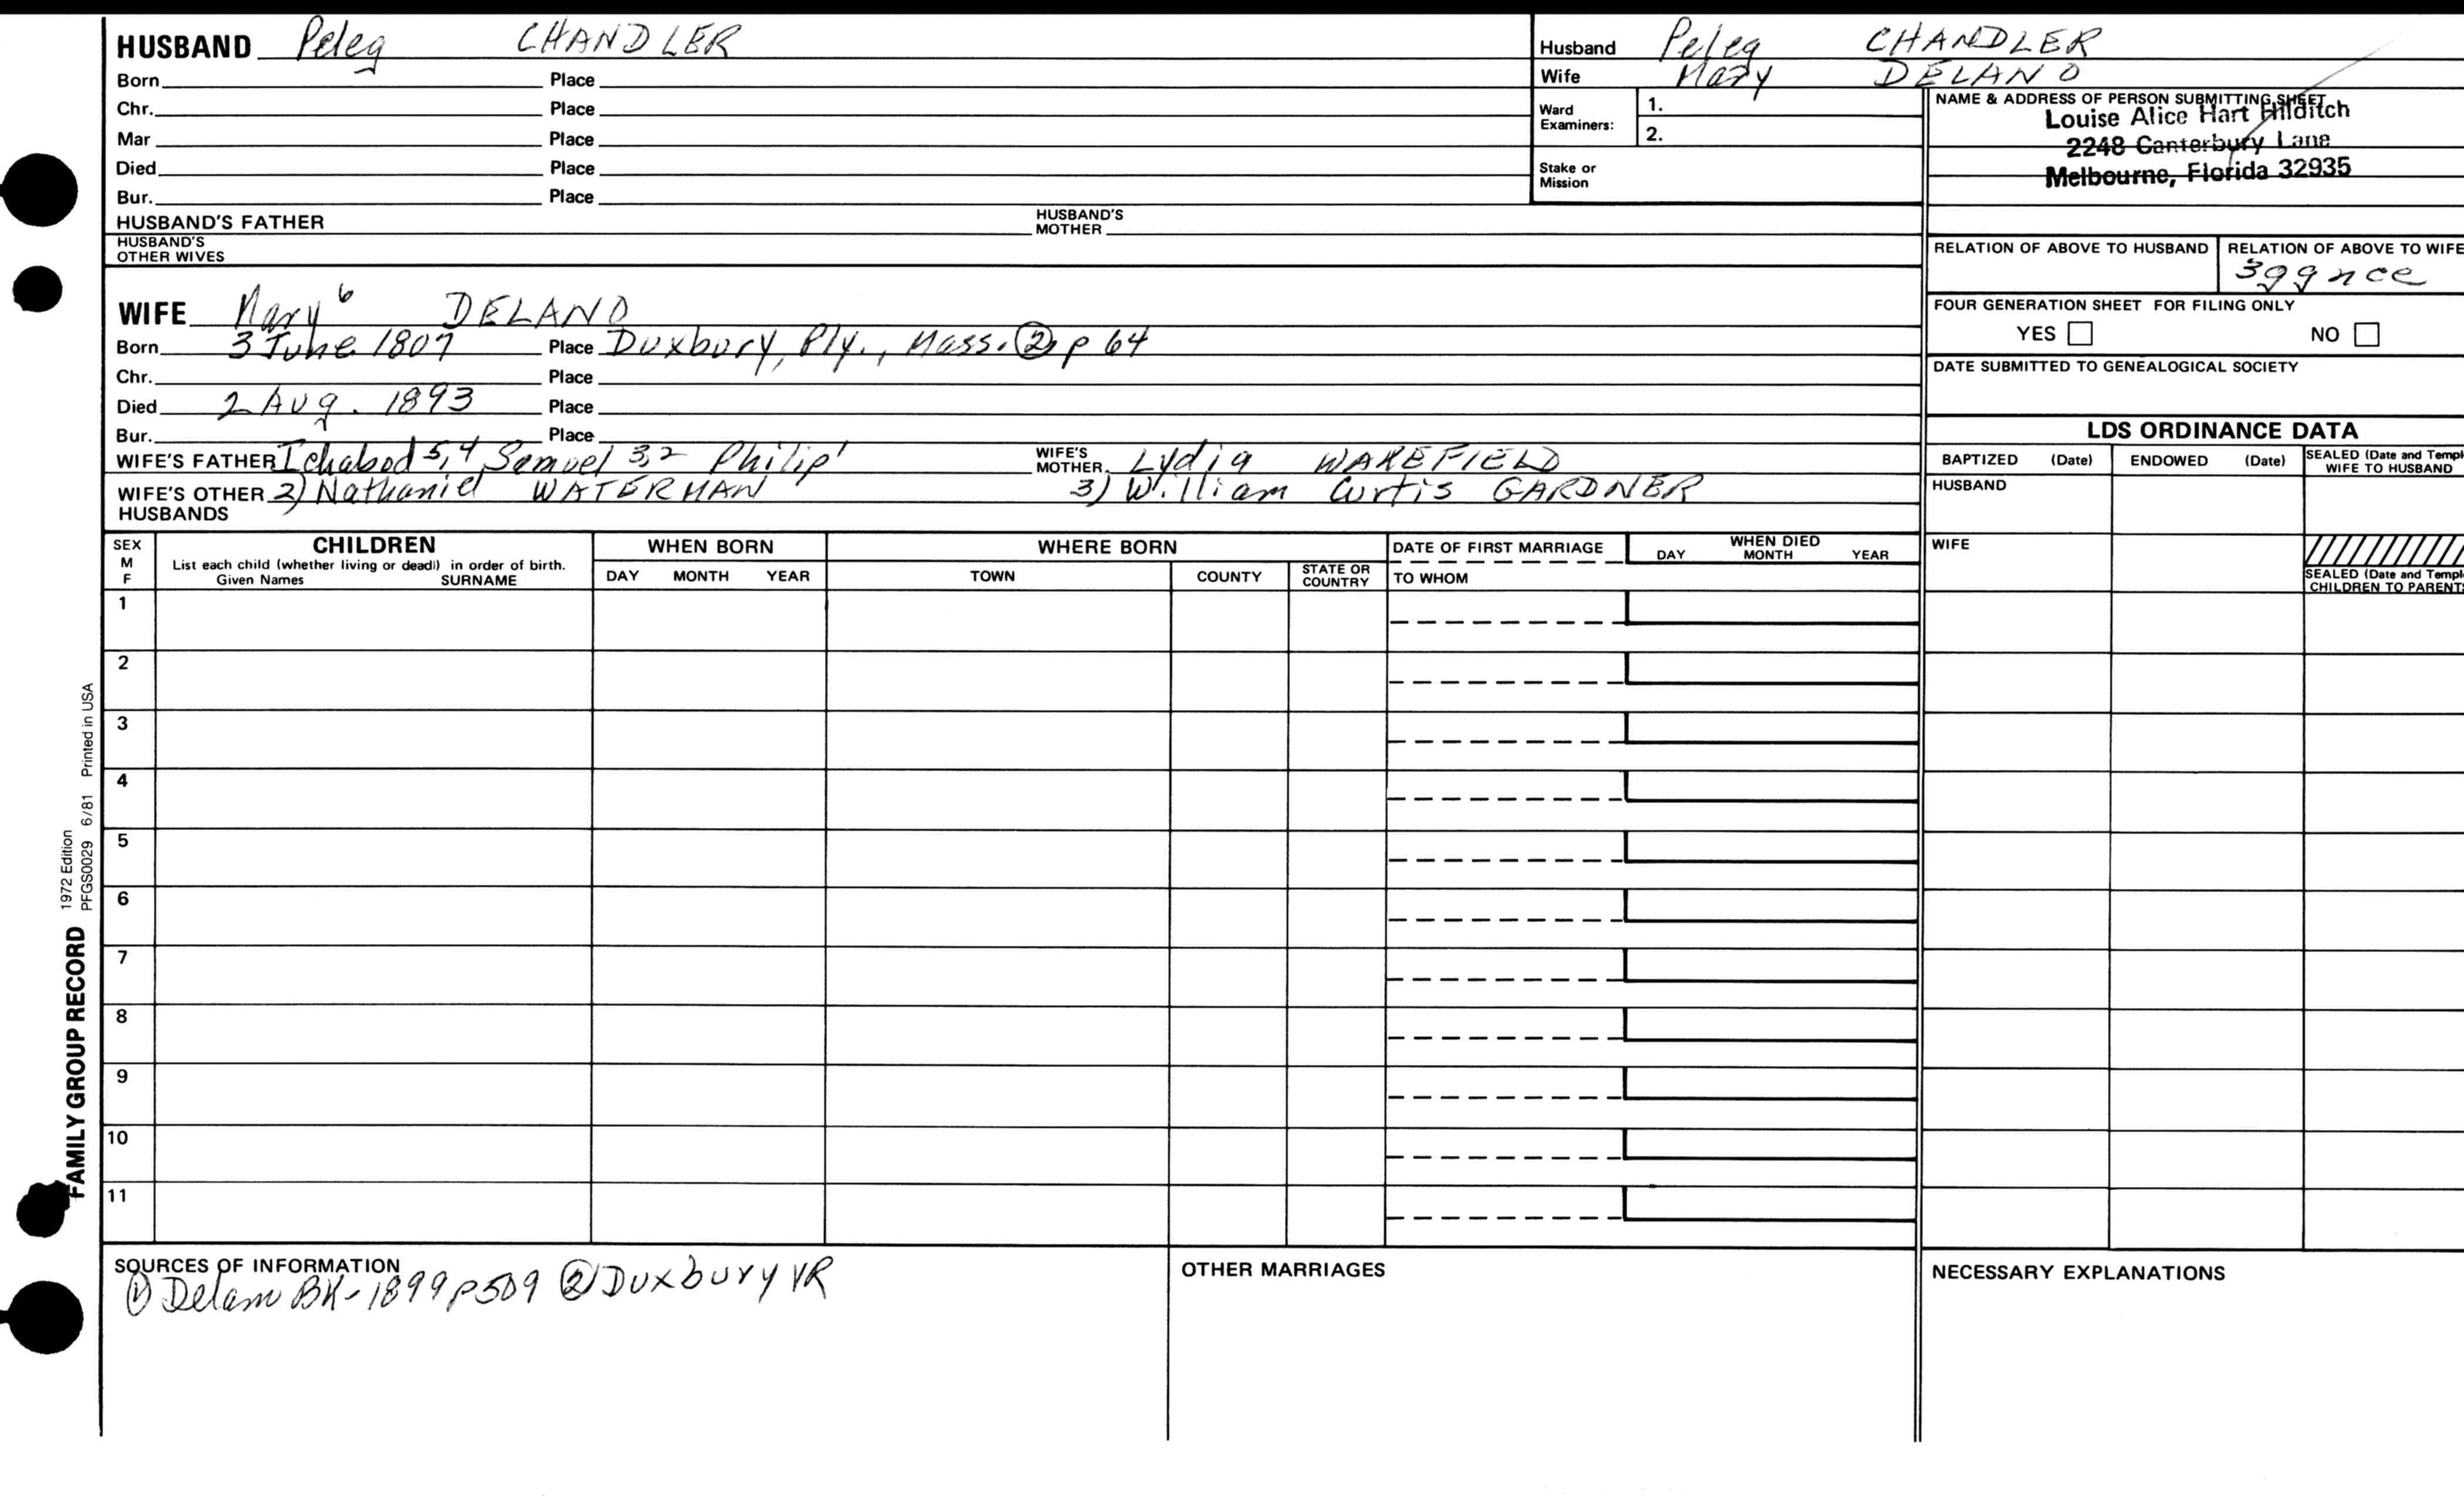 HUSBAND Peleg CHANDLER
Born Place
Chr. Place
Mar Place
Died Place
Bur. Place
HUSBAND'S FATHER HUSBAND'S MOTHER
HUSBAND'S OTHER WIVES
Husband Peleg CHANDLER
Wife Mary DELANO
Ward Examiners: 1.
2.
Stake or Mission
NAME & ADDRESS OF PERSON SUBMITTING SHEET
Louise Alice Hart Hilditch
2248 Canterbury Lane
Melbourne, Florida 32935
RELATION OF ABOVE TO HUSBAND RELATION OF ABOVE TO WIFE
3ggnce
FOUR GENERATION SHEET FOR FILING ONLY
YES NO
DATE SUBMITTED TO GENEALOGICAL SOCIETY
WIFE Mary 6 DELANO
Born 3 June 1807 Place Duxbury, Ply., Mass. ② p 64
Chr. Place
Died 2 Aug. 1893 Place
Bur. Place
WIFE'S FATHER Ichabod 5,4 Samuel 3,2 Philip 1 WIFE'S MOTHER Lydia WAKEFIELD
WIFE'S OTHER HUSBANDS 2) Nathaniel WATERMAN 3) William Curtis GARDNER
LDS ORDINANCE DATA
BAPTIZED (Date) ENDOWED (Date) SEALED (Date and Templ
WIFE TO HUSBAND
HUSBAND
WIFE
SEALED (Date and Templ
CHILDREN TO PARENTS
SEX
M
F
CHILDREN
List each child (whether living or dead) in order of birth.
Given Names SURNAME
WHEN BORN
DAY MONTH YEAR
WHERE BORN
TOWN COUNTY STATE OR COUNTRY
DATE OF FIRST MARRIAGE
TO WHOM
WHEN DIED
DAY MONTH YEAR
1
2
3
4
5
6
7
8
9
10
11
FAMILY GROUP RECORD
1972 Edition
PFGS0029 6/81 Printed in USA
SOURCES OF INFORMATION
① Delano BK-1899 p509 ② Duxbury VR
OTHER MARRIAGES
NECESSARY EXPLANATIONS